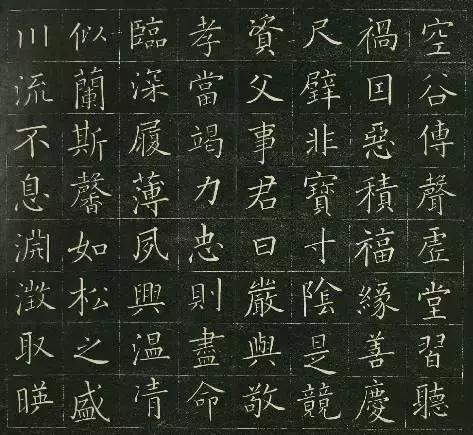 空谷傳聲虛堂習聽
禍囙惡積福緣善慶
尺璧非寶寸陰是競
資父事君曰嚴與敬
孝當竭力忠則盡命
臨深履薄夙興温凊
似蘭斯馨如松之盛
川流不息淵澂取暎